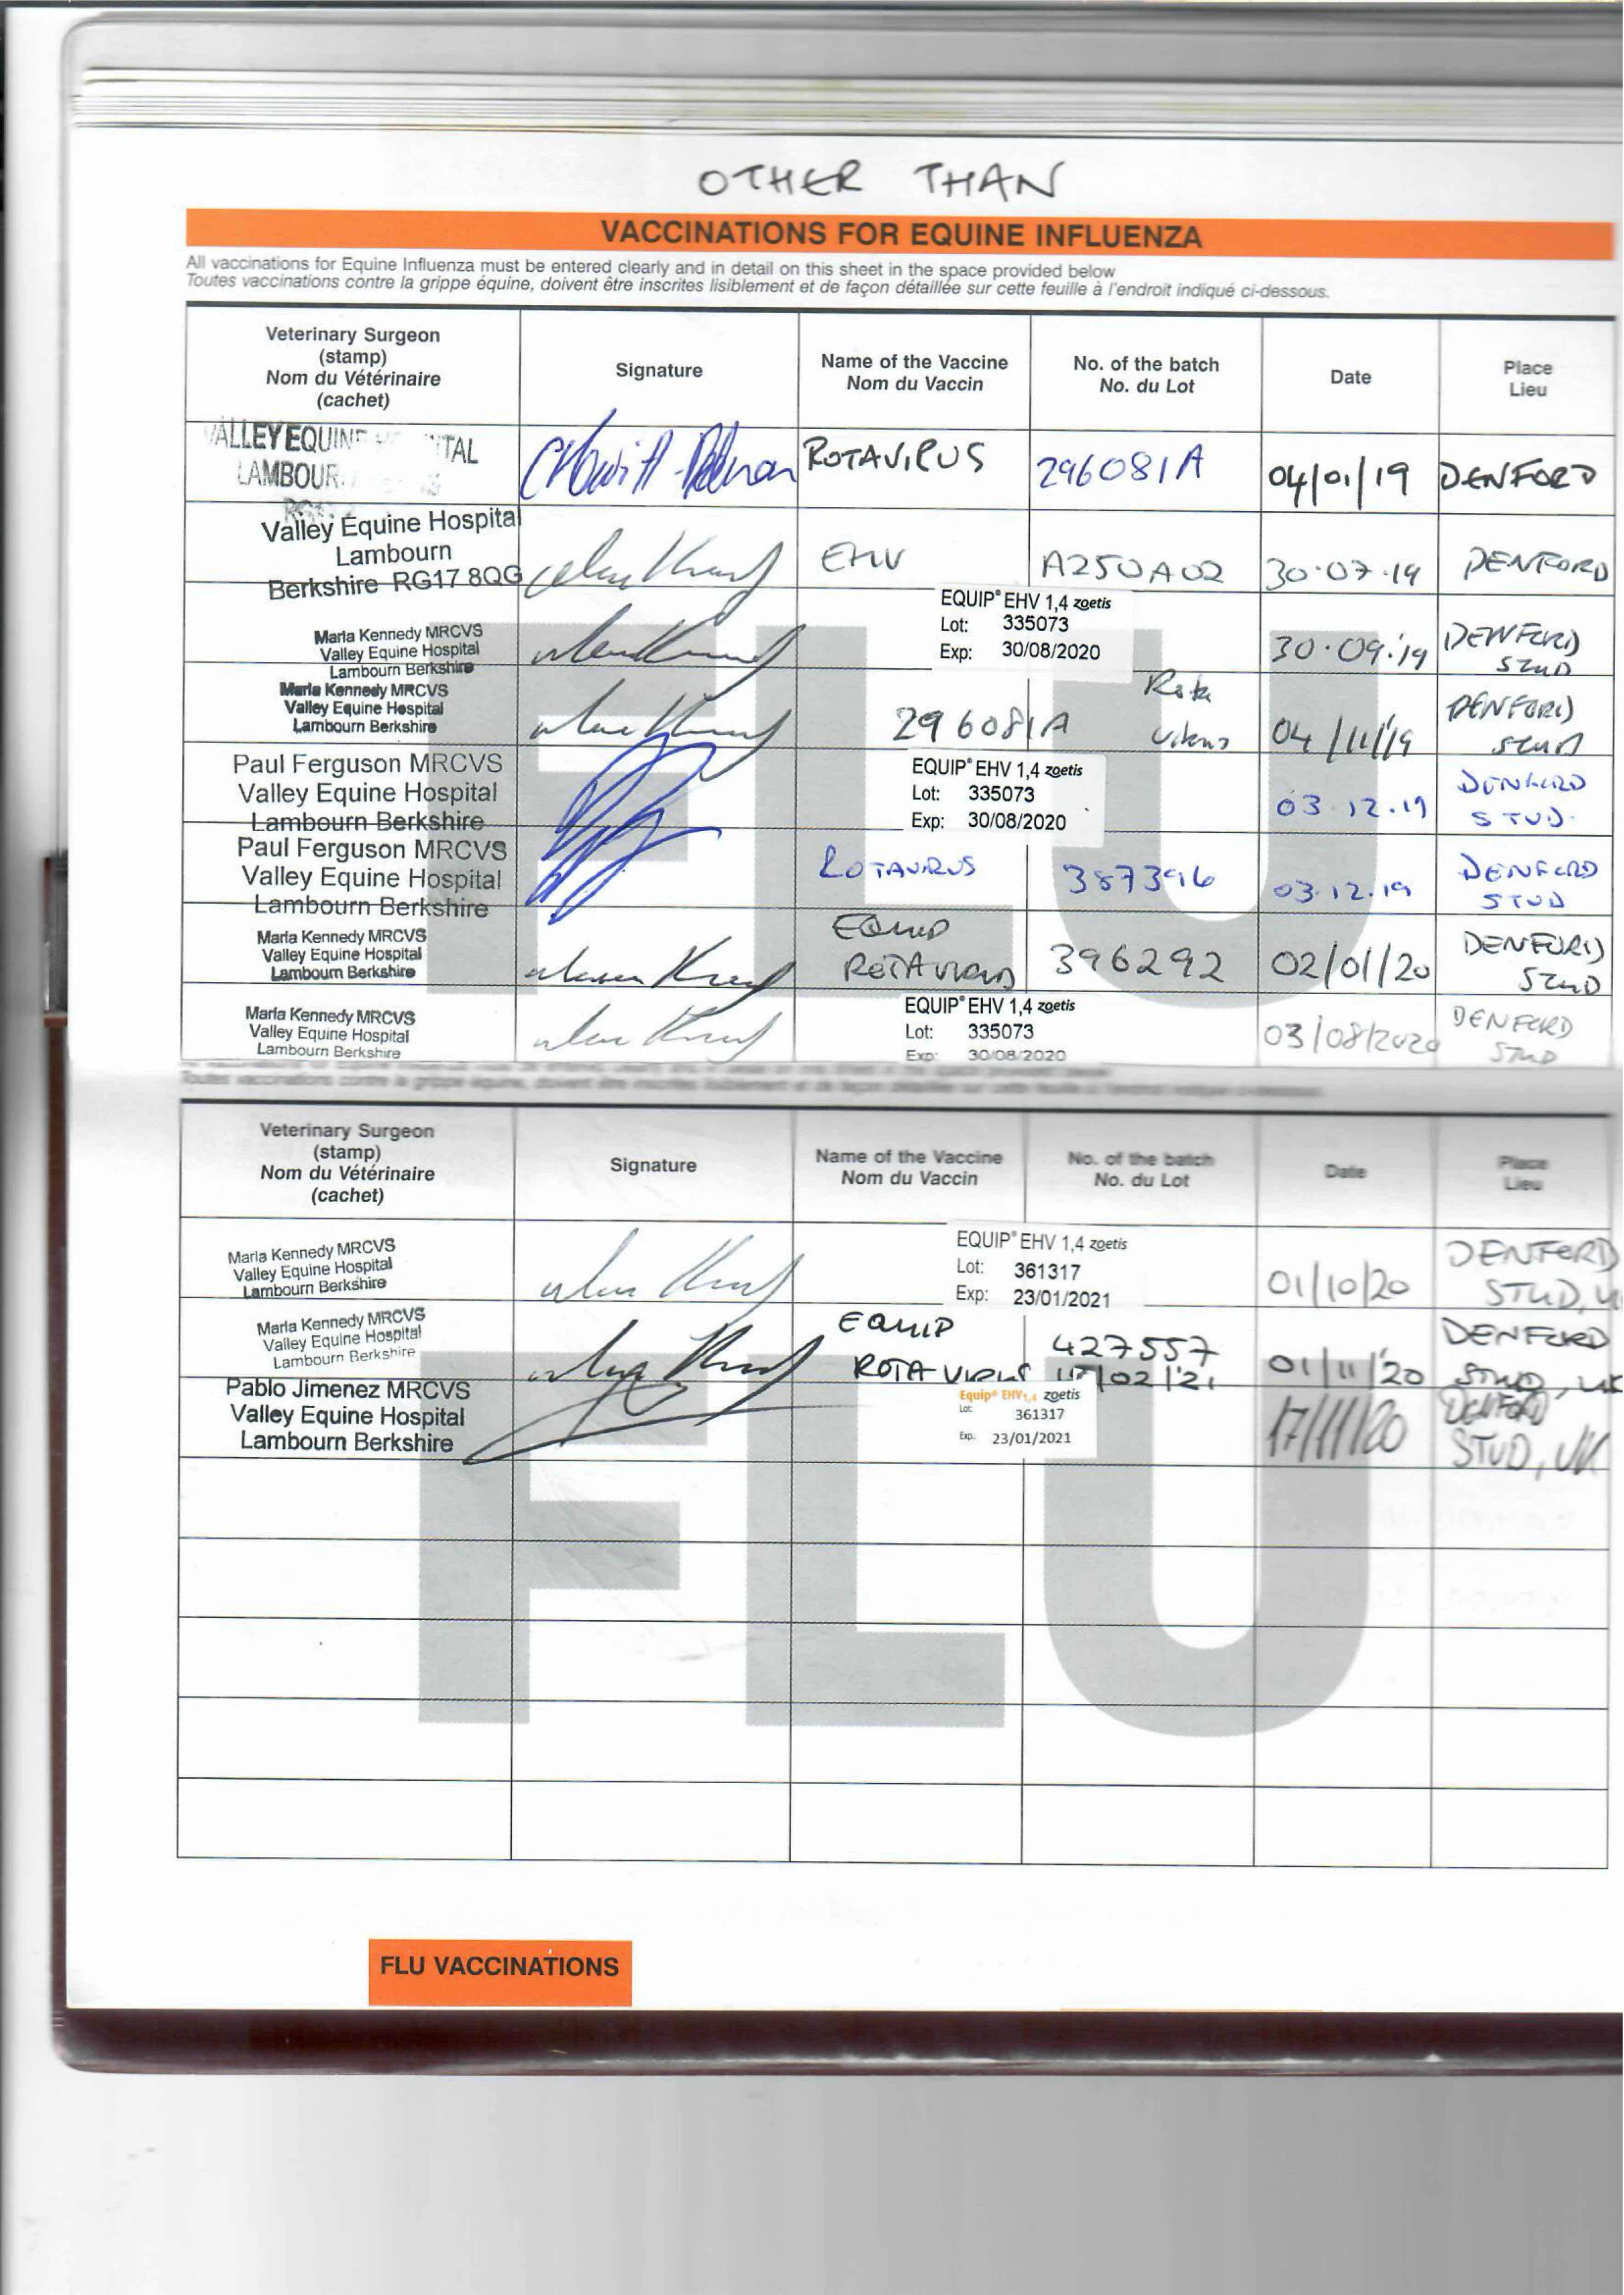 OTHER THAN
VACCINATIONS FOR EQUINE INFLUENZA
All vaccinations for Equine Influenza must be entered clearly and in detail on this sheet in the space provided below
Toutes vaccinations contre la grippe équine, doivent être inscrites lisiblement et de façon détaillée sur cette feuille à l'endroit indiqué ci-dessous.
Veterinary Surgeon
(stamp)
Nom du Vétérinaire
(cachet)
Signature
Name of the Vaccine
Nom du Vaccin
No. of the batch
No. du Lot
Date
Place
Lieu
VALLEY EQUINE
LAMBOUR
ROTAVIRUS
296081A
04/01/19
DENFORD
Valley Equine Hospital
Lambourn
Berkshire RG17 8QG
EHV
A250A02
30.07.19
DENFORD
Marla Kennedy MRCVS
Valley Equine Hospital
Lambourn Berkshire
EQUIP® EHV 1,4 zoetis
Lot: 335073
Exp: 30/08/2020
30.09.'19
DENFORD
STUD
Marla Kennedy MRCVS
Valley Equine Hospital
Lambourn Berkshire
296081A
Rota
04/11/'19
DENFORD
STUD
Paul Ferguson MRCVS
Valley Equine Hospital
Lambourn Berkshire
EQUIP® EHV 1,4 zoetis
Lot: 335073
Exp: 30/08/2020
03.12.19
DENFORD
STUD.
Paul Ferguson MRCVS
Valley Equine Hospital
Lambourn Berkshire
ROTAVIRUS
387396
03.12.19
DENFORD
STUD
Marla Kennedy MRCVS
Valley Equine Hospital
Lambourn Berkshire
EQUIP
ROTAVIRUS
396292
02/01/20
DENFORD
STUD
Marla Kennedy MRCVS
Valley Equine Hospital
Lambourn Berkshire
EQUIP® EHV 1,4 zoetis
Lot: 335073
Exp: 30/08/2020
03/08/2020
DENFORD
STUD
FLU
Toutes vaccinations contre la grippe équine, doivent être inscrites lisiblement et de façon détaillée sur cette feuille à l'endroit indiqué ci-dessous.
Veterinary Surgeon
(stamp)
Nom du Vétérinaire
(cachet)
Signature
Name of the Vaccine
Nom du Vaccin
No. of the batch
No. du Lot
Date
Place
Lieu
Marla Kennedy MRCVS
Valley Equine Hospital
Lambourn Berkshire
EQUIP® EHV 1,4 zoetis
Lot: 361317
Exp: 23/01/2021
01/10/20
DENFORD
STUD,
Marla Kennedy MRCVS
Valley Equine Hospital
Lambourn Berkshire
EQUIP
ROTAVIRUS
427557
/02/'21
01/11/'20
DENFORD
STUD, UK
Pablo Jimenez MRCVS
Valley Equine Hospital
Lambourn Berkshire
Equip® EHV1,4 zoetis
Lot: 361317
Exp. 23/01/2021
17/11/20
DENFORD
STUD, UK
FLU
FLU VACCINATIONS